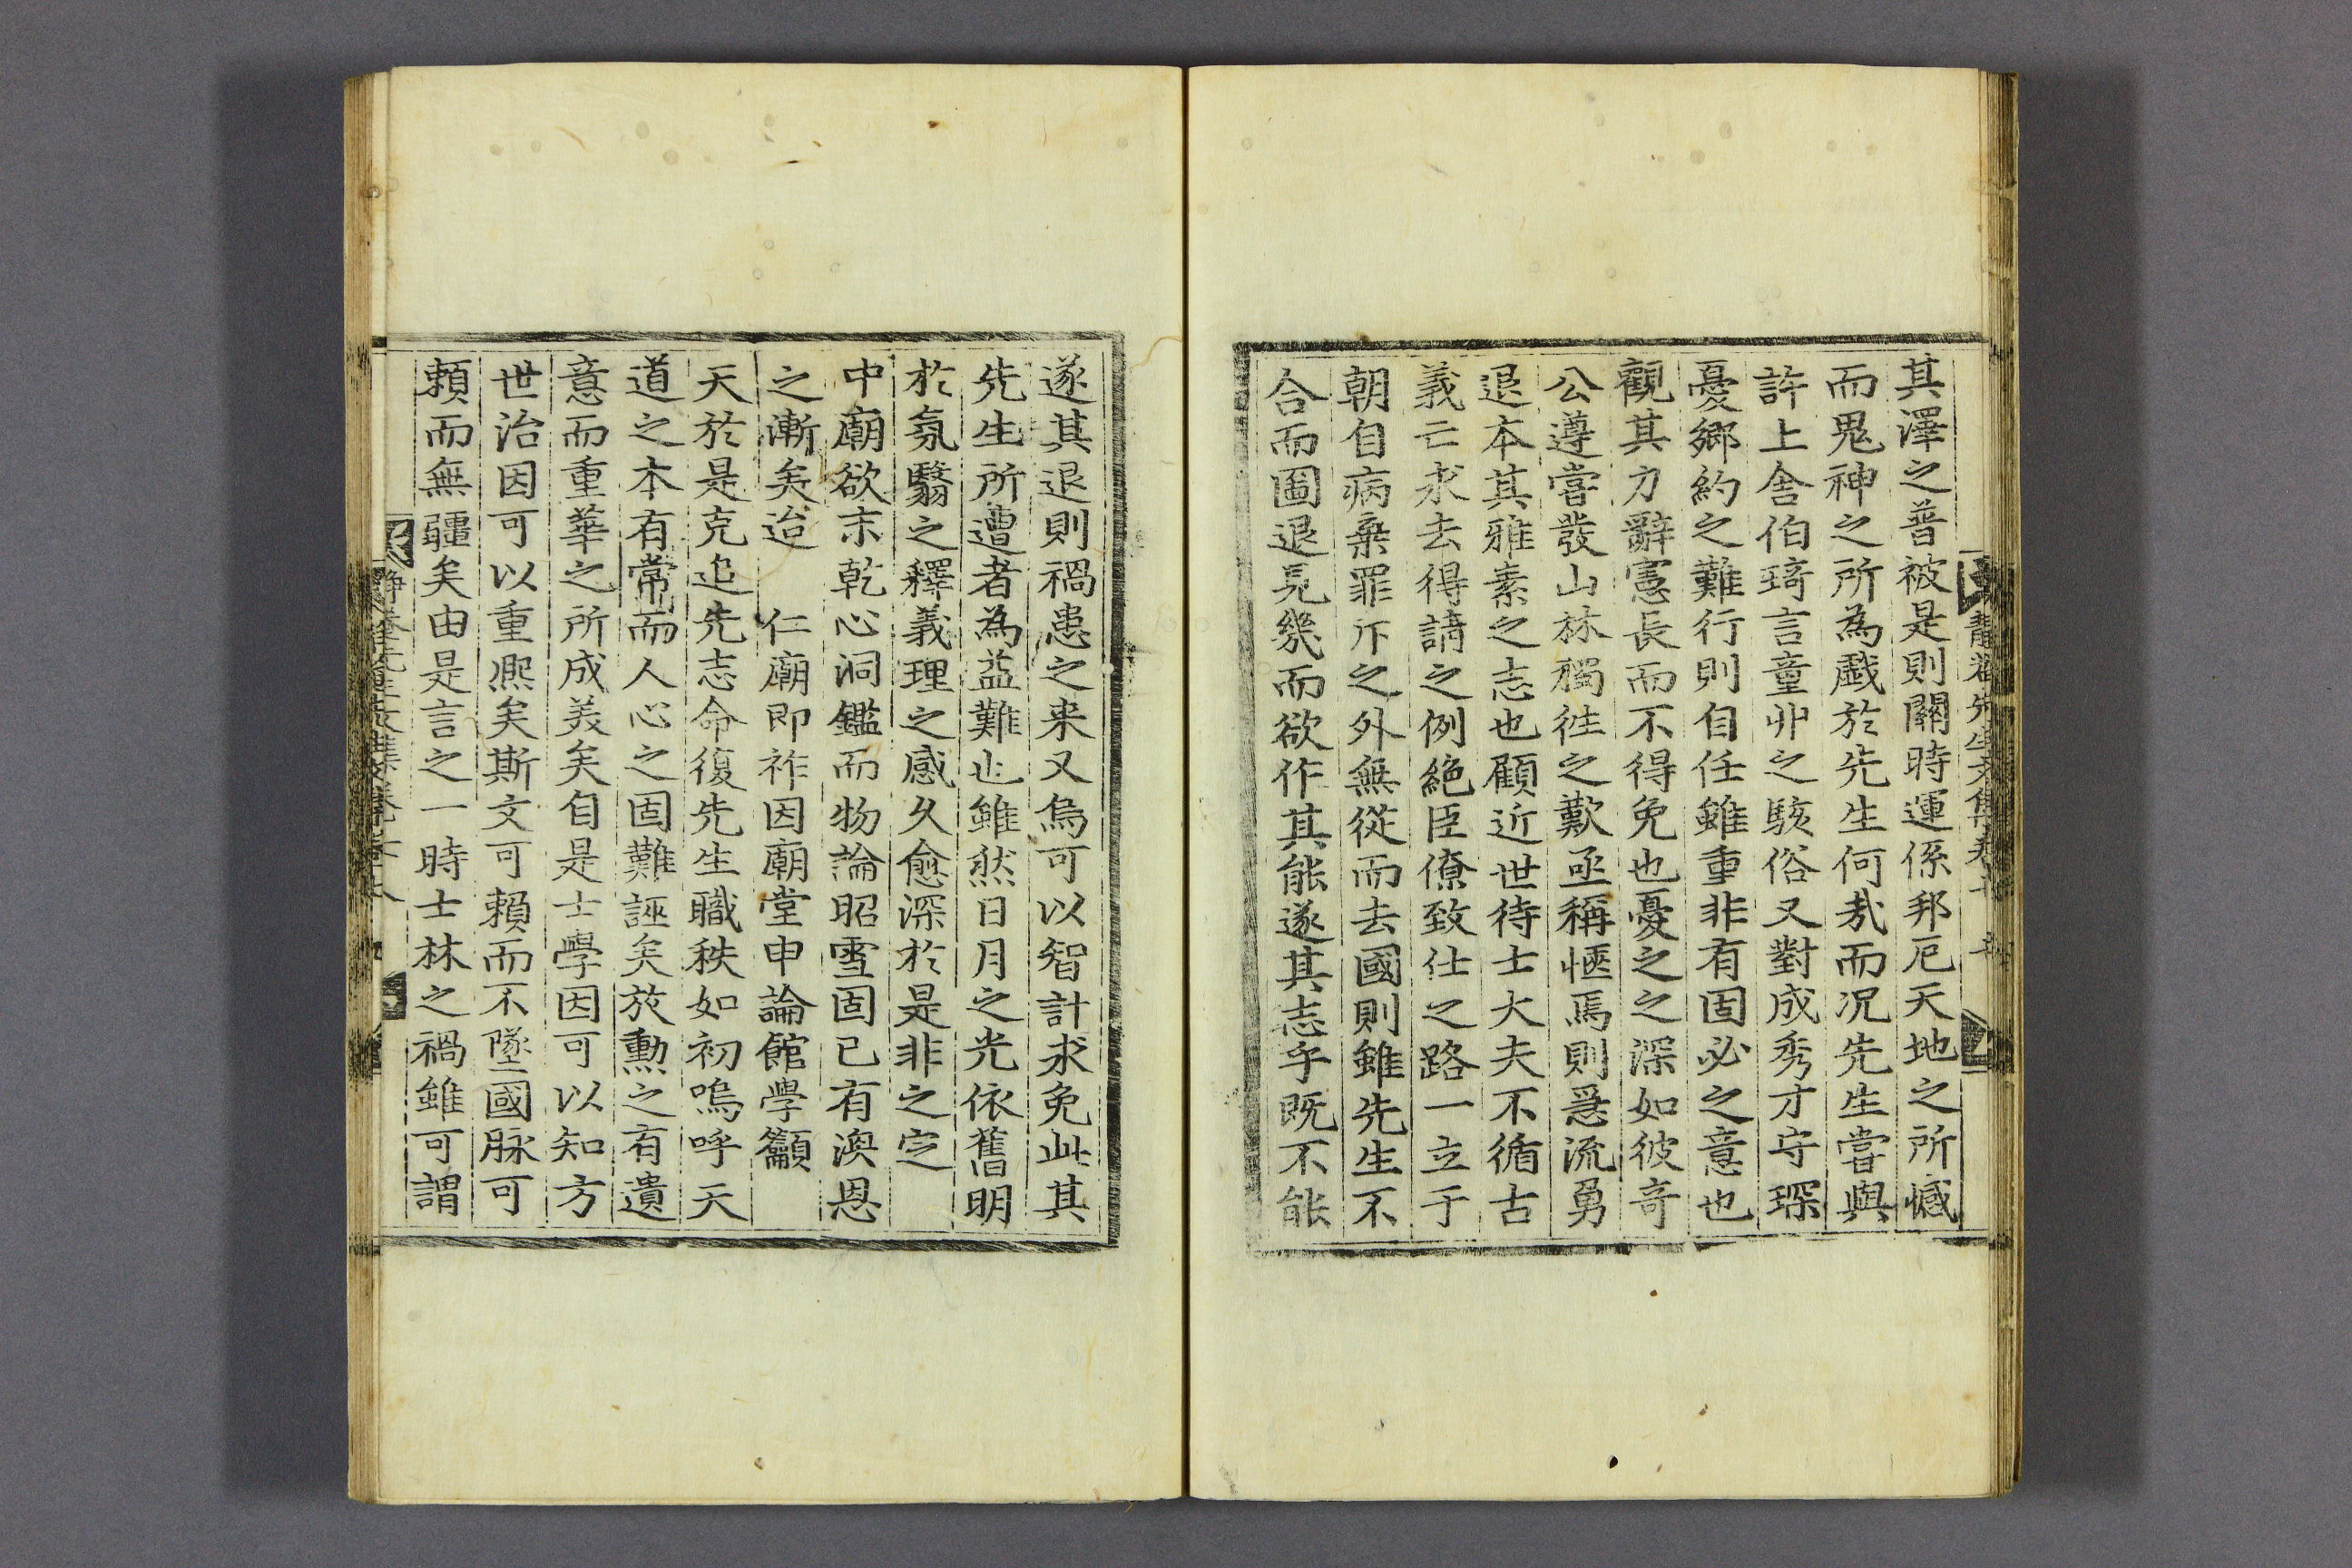 其澤之普被是則關時運係邦厄天地之所憾
而鬼神之所為戱於先生何㦲而況先生甞與
許上舍伯琦言童丱之駭俗又對成秀才守琛
憂鄉約之難行則自任雖重非有固必之意也
觀其力辭憲長而不得免也憂之之深如彼奇
公遵嘗發山林獨徃之歎亟稱愜焉則急流勇
退本其雅素之志也顧近世待士大夫不循古
義亡求去得請之例絶臣僚致仕之路一立于
朝自病棄罪斥之外無從而去國則雖先生不
合而圖退見幾而欲作其能遂其志乎既不能
遂其退則禍患之来又烏可以智計求免此其
先生所遭者為益難也雖然日月之光依舊明
於氛翳之釋義理之感久愈深於是非之定
中廟欲末乾心洞鑑而物論昭雪固已有渙恩
之漸矣迨 仁廟即祚因廟堂申論館學籲
天於是克追先志命復先生職秩如初嗚呼天
道之本有常而人心之固難誣矣放勳之有遺
意而重華之所成美矣自是士學因可以知方
世治因可以重熈矣斯文可賴而不墜國脉可
賴而無疆矣由是言之一時士林之禍雖可謂
靜菴先生文集